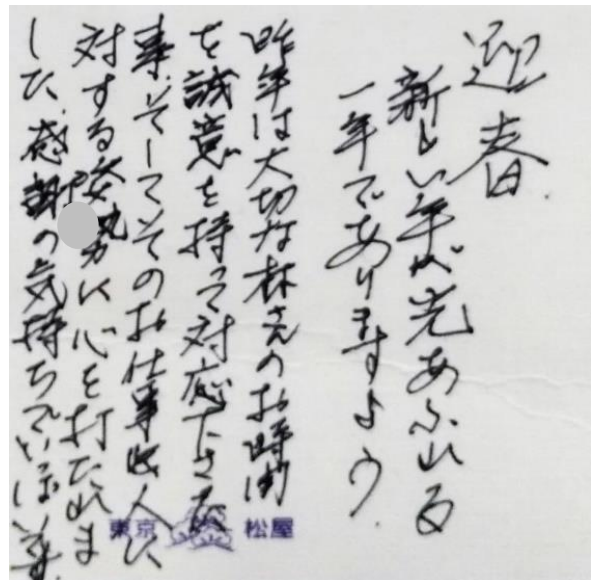 迎春
新しい年が光あふれる
一年でありますよう
昨年は大切な林さんのお時間
を誠意を持って対応下さった
事、そしてそのお仕事 人に
対する姿勢に心を打たれま
した。感謝の気持ちでいっぱい
東京 松屋